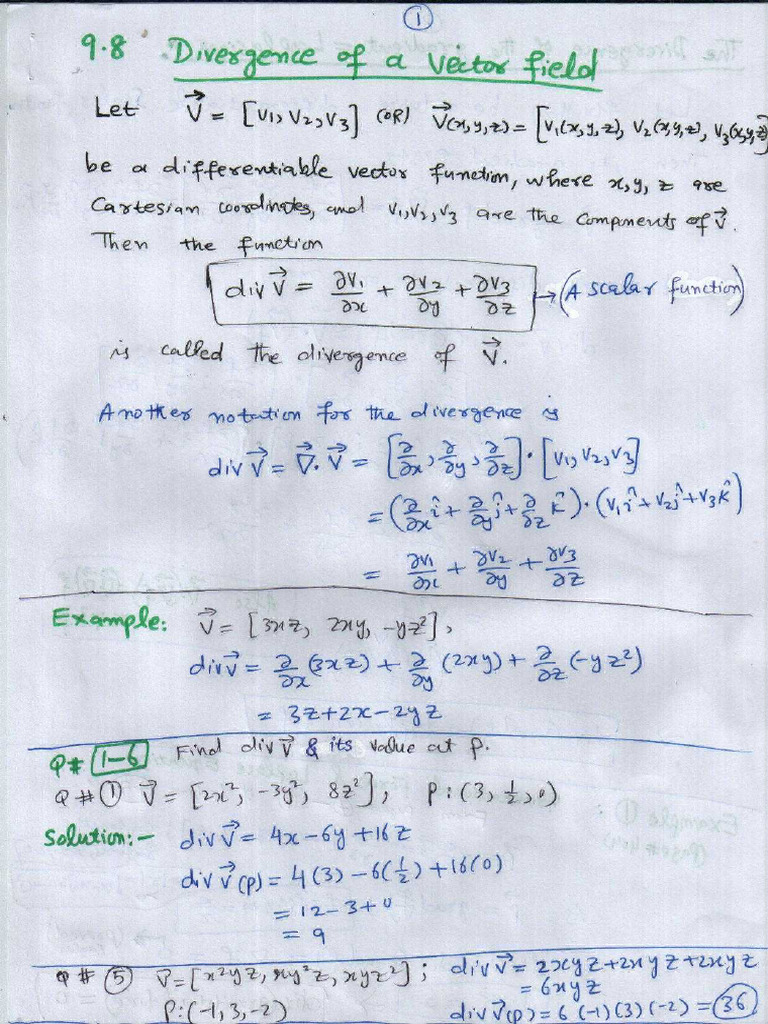 1
9.8 Divergence of a vector field
Let V⃗ = [V₁, V₂, V₃] (OR) V⃗(x,y,z) = [V₁(x,y,z), V₂(x,y,z), V₃(x,y,z)]
be a differentiable vector function, where x, y, z are
Cartesian coordinates, and V₁, V₂, V₃ are the components of V⃗.
Then the function
div V⃗ = ∂V₁/∂x + ∂V₂/∂y + ∂V₃/∂z → (A scalar function)
is called the divergence of V⃗.
Another notation for the divergence is
div V⃗ = ∇⃗ · V⃗ = [∂/∂x, ∂/∂y, ∂/∂z] · [V₁, V₂, V₃]
= (∂/∂x î + ∂/∂y ĵ + ∂/∂z k̂) · (V₁î + V₂ĵ + V₃k̂)
= ∂V₁/∂x + ∂V₂/∂y + ∂V₃/∂z
Example: V⃗ = [3xz, 2xy, -yz²],
div V⃗ = ∂/∂x (3xz) + ∂/∂y (2xy) + ∂/∂z (-yz²)
= 3z + 2x - 2yz
Q# 1-6 Find div V⃗ & its value at P.
Q # 1 V⃗ = [2x², -3y², 8z²]; P: (3, 1/2, 0)
Solution:- div V⃗ = 4x - 6y + 16z
div V⃗(P) = 4(3) - 6(1/2) + 16(0)
= 12 - 3 + 0
= 9
Q # 5 V⃗ = [x²yz, xy²z, xyz²]; div V⃗ = 2xyz + 2xyz + 2xyz
= 6xyz
P: (-1, 3, -2) div V⃗(P) = 6(-1)(3)(-2) = 36